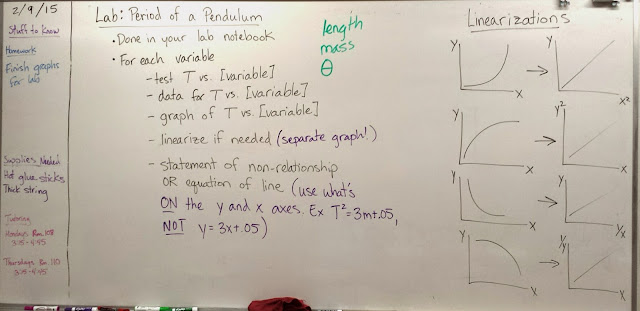 2/9/15
Stuff to Know
Homework
Finish graphs
for lab
Supplies Needed
Hot glue sticks
Thick string
Tutoring
Mondays Rm 108
3:15-4:45
Thursdays Rm 110
3:15-4:45
Lab: Period of a Pendulum
• Done in your lab notebook
• For each variable
- test T vs. [variable]
- data for T vs. [variable]
- graph of T vs. [variable]
- linearize if needed (separate graph!)
- statement of non-relationship
OR equation of line (use what's
ON the y and x axes. Ex T²=3m+.05,
NOT y=3x+.05)
length
mass
θ
Linearizations
y x → y x²
y x → y² x
y x → y 1/x
y x → 1/y x